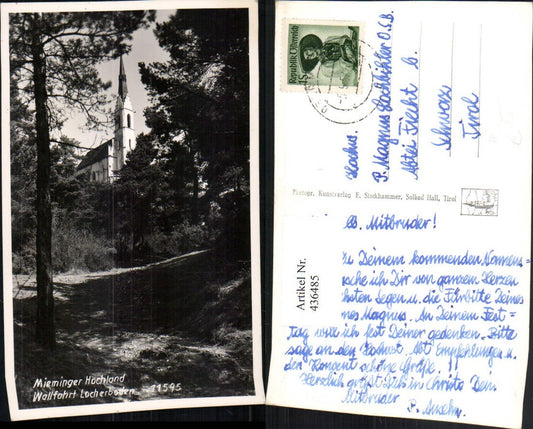 Mieminger Hochland
Wallfahrt Locherboden 11595
Republik Österreich
Hochw.
P. Magnus O.S.B.
Abtei Fiecht b.
Schwaz
Tirol
Photogr. Kunstverlag E. Stockhammer, Solbad Hall, Tirol
Artikel Nr.
436485
lb. Mitbruder!
Zu Deinem kommenden Namens=
Dir von ganzem Herzen
Segen u. die Fürbitte Deines
Magnus. An Deinem Fest=
tag will ich fest Deiner gedenken. Bitte
sage an den Empfehlungen u.
den Konvent schöne Grüße!
Herzlich grüßt Dich in Christo Dein
Mitbruder
P. Anselm.